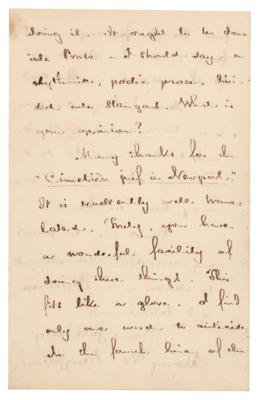 doing it. It ought to be done
into Prose – I should say a
rhythmic, poetic prose, divi-
ded into Stanzas. What is
your opinion?
Many thanks for the
"Cimetière juif à Newport."
It is excellently well trans-
lated. Truly, you have
a wonderful facility of
doing these things. This
fits like a glove. I find
only one word to criticise
in the fourth line of the